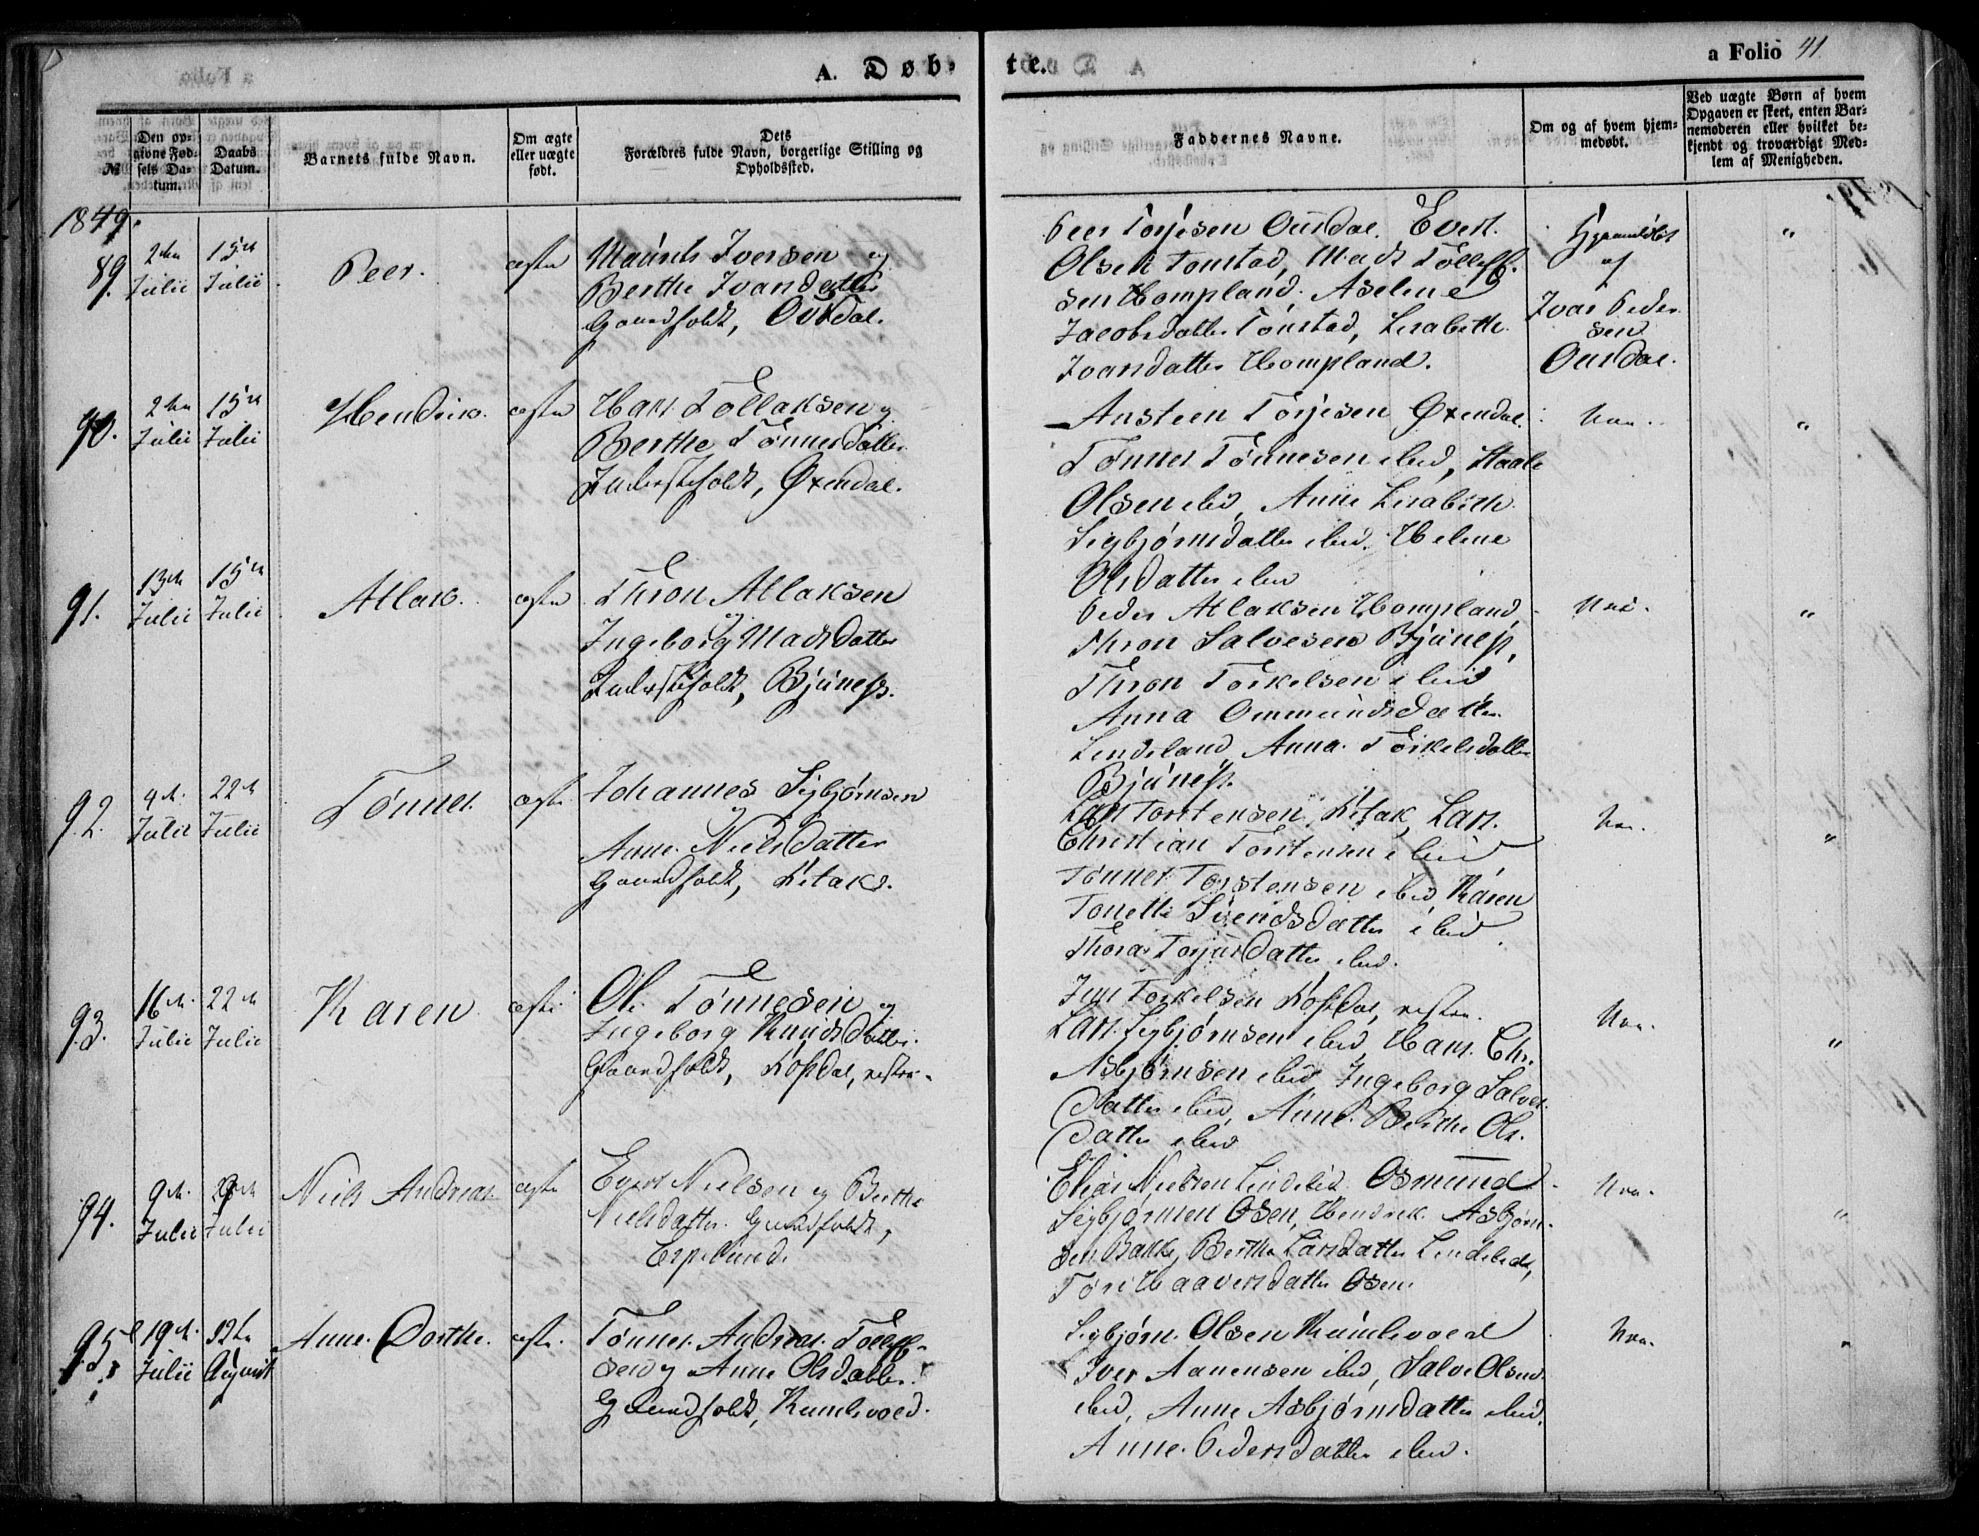 A. Døb-
te.
a Folio 41
№
Den opgivne Fødsels Datum.
Daabs Datum.
Barnets fulde Navn.
Om ægte eller uægte født.
Dets Forældres fulde Navn, borgerlige Stilling og Opholdssted.
Faddernes Navne.
Om og af hvem hjemmedøbt.
Ved uægte Børn af hvem Opgaven er skeet, enten Barnemoderen eller hvilket bekjendt og troværdigt Medlem af Menigheden.
1849.
89.
2den Julii
15de Julii
Peer.
ægte
Maurits Iversen og
Berthe Ivarsdatter
Gaardfolk, Ousdal.
Peer Torjesen Ousdal. Evert
Olsen Tonstad, Mads Tollefsen
Hompland, Aselene
Jacobsdatter Tonstad, Lisabeth
Ivarsdatter Hompland.
Hjemmedøbt
af
Ivar Peder
sen
Ousdal.
"
90.
2den Julii
15de Julii
Hendrik.
ægte
Hans Tollaksen og
Berthe Tønnesdatter
Inderstfolk, Øxendal.
Ansteen Torjesen Øxendal
Tønnes Tønnesen ibid, Staale
Olsen ibid, Anne Lisabeth
Sigbjørnsdatter ibid. Helene
Olsdatter ibid
Nei.
"
91.
13de Julii
15de Julii
Atlak.
ægte
Thron Atlaksen
og
Ingeborg Madsdatter
Inderstfolk, Bjuness.
Peder Atlaksen Hompland,
Thron Salvesen Bjuness,
Thron Torkelsen ibid
Anna Ommundsdatter
Lindeland, Anna Torkelsdatter
Bjuness.
Nei.
"
92.
4de Julii
22de Julii
Tønnes.
ægte
Johannes Sigbjørnsen
og
Anne Nielsdatter
Gaardfolk, Ketak.
Lars Torstensen Ketak, Lars
Christian Torstensen ibid
Tønnes Torstensen ibid Karen
Tonette Svendsdatter ibid.
Thora Torjusdatter ibid.
Nei.
"
93.
16de Julii
22de Julii
Karen
ægte
Ole Tønnesen og
Ingeborg Knudsdatter
Gaardfolk, Josdal, vestre.
Jens Torkelsen Josdal, vestre.
Lars Sigbjørnsen ibid, Hans Chr.
Asbjørnsen ibid Ingeborg Salves-
datter ibid, Anne Berthe Ols-
datter ibid
Nei.
"
94.
9de Julii
Julii
Niels Andreas
ægte
Evert Nielsen og Berthe
Nielsdatter Gaardfolk,
Espelund.
Elias Nielsen Lindelid Osmund
Sigbjørnsen Osen, Hendrik Asbjørn-
sen Bakke, Berthe Larsdatter Lindelid,
Tore Haaversdatter Osen.
Nei.
"
95.
19de Julii
12te August
Anne Dorthe.
ægte.
Tønnes Andreas Tollef-
sen og Anne Olsdatter
Gaardfolk, Kumlevold.
Sigbjørn Olsen Kumlevold
Iver Aanensen ibid, Salve Olsen
ibid, Anne Asbjørnsdatter ibid,
Anne Pedersdatter ibid.
Nei.
"